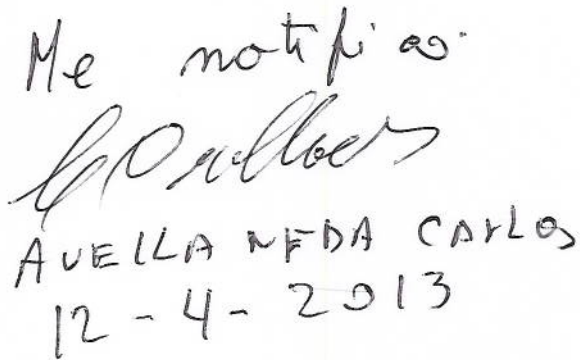 Me notifico.
AVELLANEDA CARLOS
12-4-2013